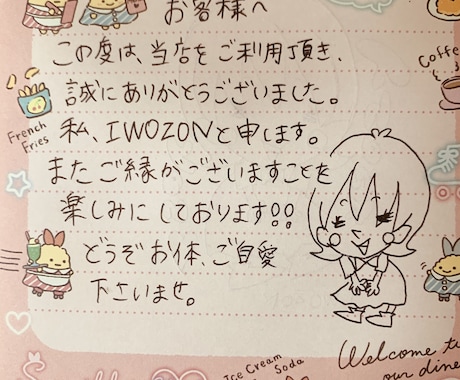 お客様へ
この度は、当店をご利用頂き、
誠にありがとうございました。
私、IWOZONと申します。
またご縁がございますことを
楽しみにしております!!
どうぞお体、ご自愛
下さいませ。
Coffee
French
Fries
Ice Cream
Soda
Welcome to
our diner